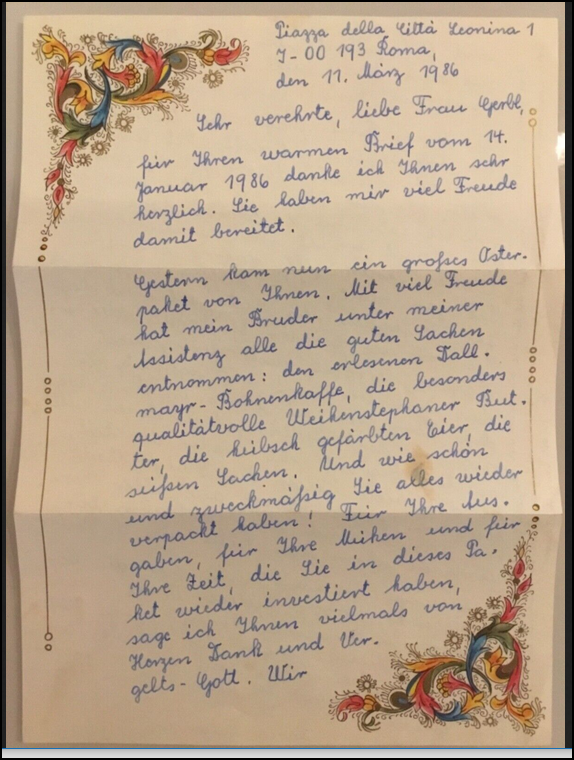 Piazza della Città Leonina 1
I-00 193 Roma,
den 11. März 1986
Sehr verehrte, liebe Frau Gerbl,
für Ihren warmen Brief vom 14.
Januar 1986 danke ich Ihnen sehr
herzlich. Sie haben mir viel Freude
damit bereitet.
Gestern kam nun ein großes Oster-
paket von Ihnen. Mit viel Freude
hat mein Bruder unter meiner
Assistenz alle die guten Sachen
entnommen: den erlesenen Dall-
mayr-Bohnenkaffe, die besonders
qualitätvolle Weihenstephaner But-
ter, die hübsch gefärbten Eier, die
süßen Sachen. Und wie schön
und zweckmäßig Sie alles wieder
verpackt haben! Für Ihre Aus-
gaben, für Ihre Mühen und für
Ihre Zeit, die Sie in dieses Pa-
ket wieder investiert haben,
sage ich Ihnen vielmals von
Herzen Dank und Ver-
gelts-Gott. Wir